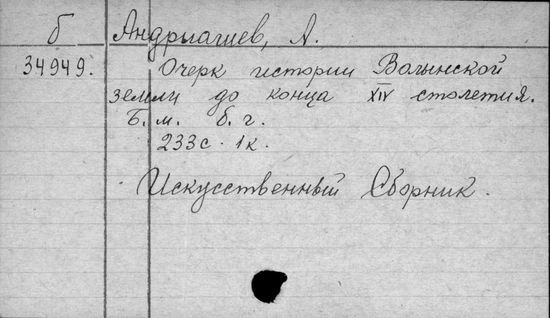 б Андрыашев, А.
34949. Очерк истории Волынской
земли до конца XIV столетия.
Б. м. б. г.
233с. 1к.
Искусственный Сборник.